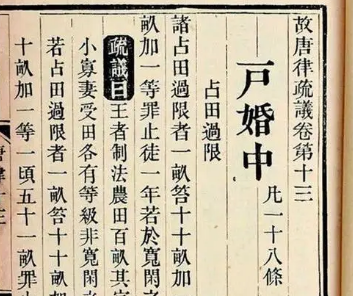 故唐律疏議卷第十三
戸婚中 凡一十八條
占田過限
諸占田過限者一畝笞十十畝加
畝加一等罪止徒一年若於寬閑之
疏議曰王者制法農田百畝其
小寡妻受田各有等級非寬閑之
若占田過限者一畝笞十十畝加
十畝加一等一頃五十一畝罪